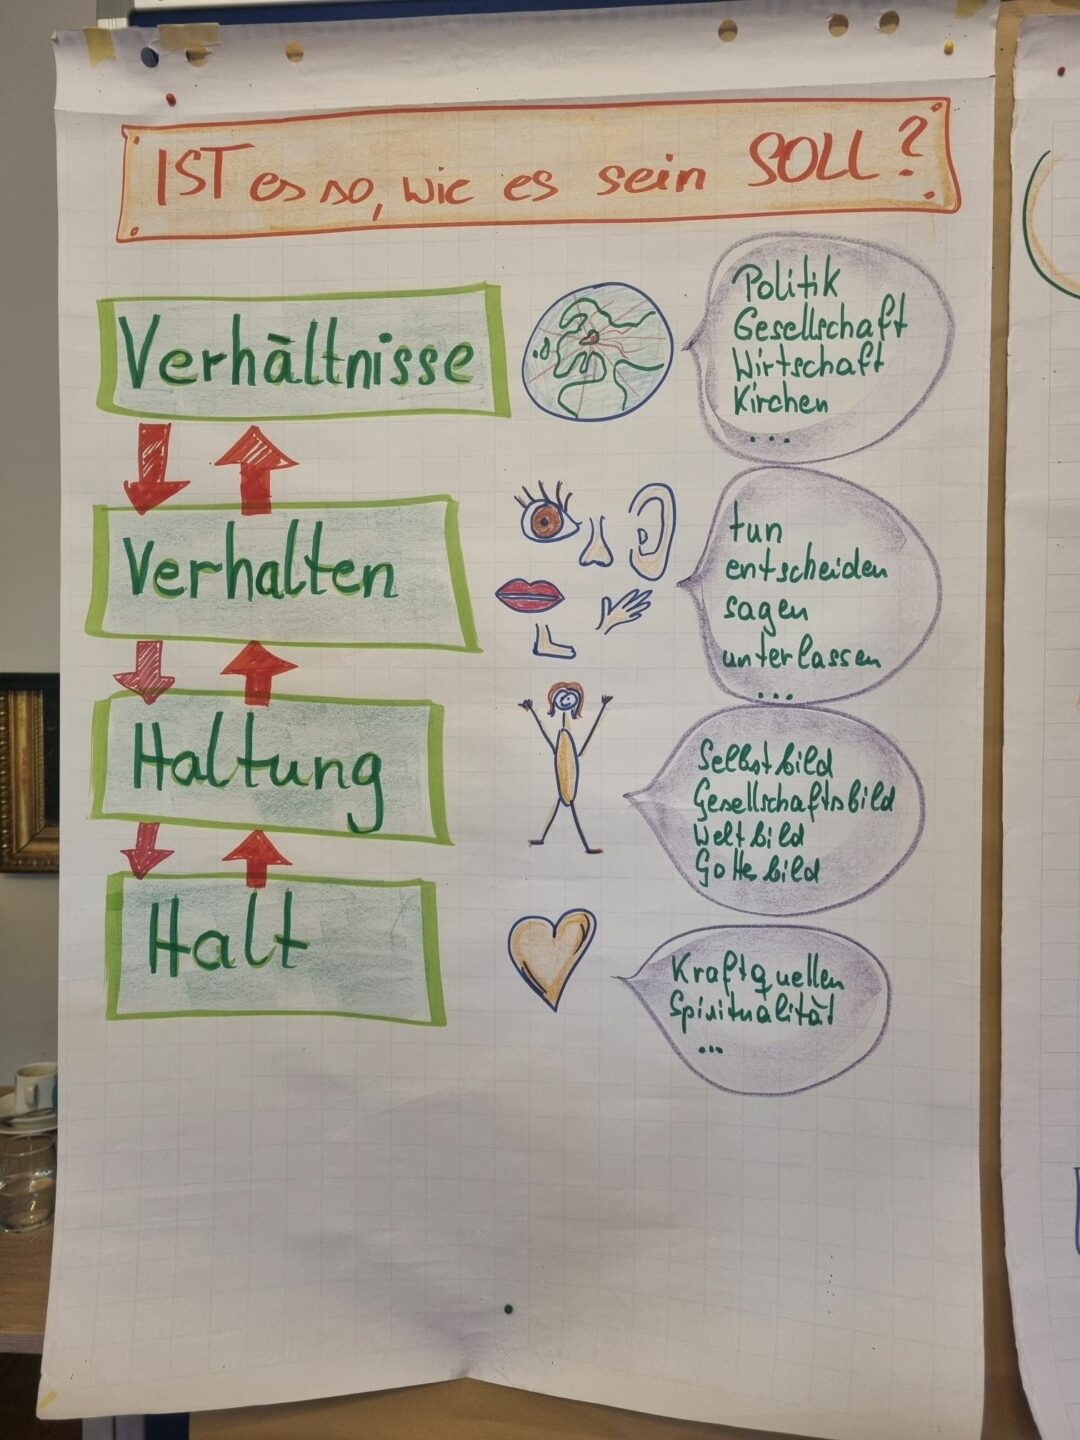 IST es so, wie es sein SOLL?
Verhältnisse
Politik
Gesellschaft
Wirtschaft
Kirchen
...
Verhalten
tun
entscheiden
sagen
unterlassen
...
Haltung
Selbstbild
Gesellschaftsbild
Weltbild
Gottesbild
Halt
Kraftquellen
Spiritualität
...